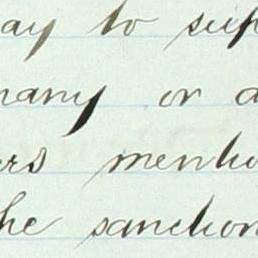 ay to sup
any or a
ers mentio
he sanction